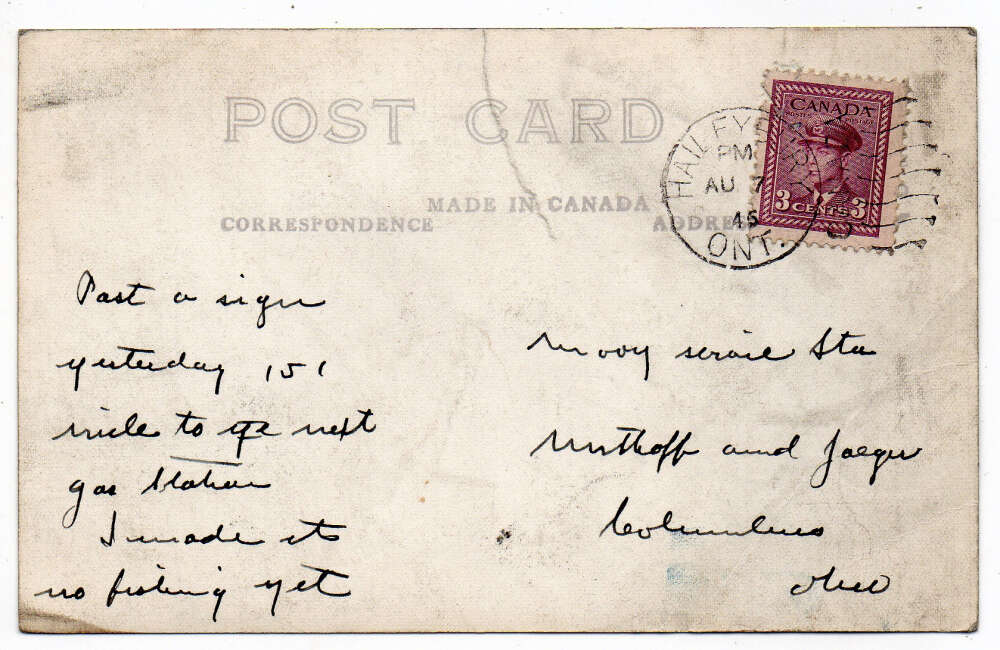 POST CARD
MADE IN CANADA
CORRESPONDENCE
ADDRESS
HAILEYBURY
PM
AU 7
45
ONT.
CANADA
POSTES POSTAGE
3 CENTS 3
Past a sign
yesterday 151
mile to next
gas Station
I made it
no fishing yet
Station
and Jaeger
Columbus
Ohio